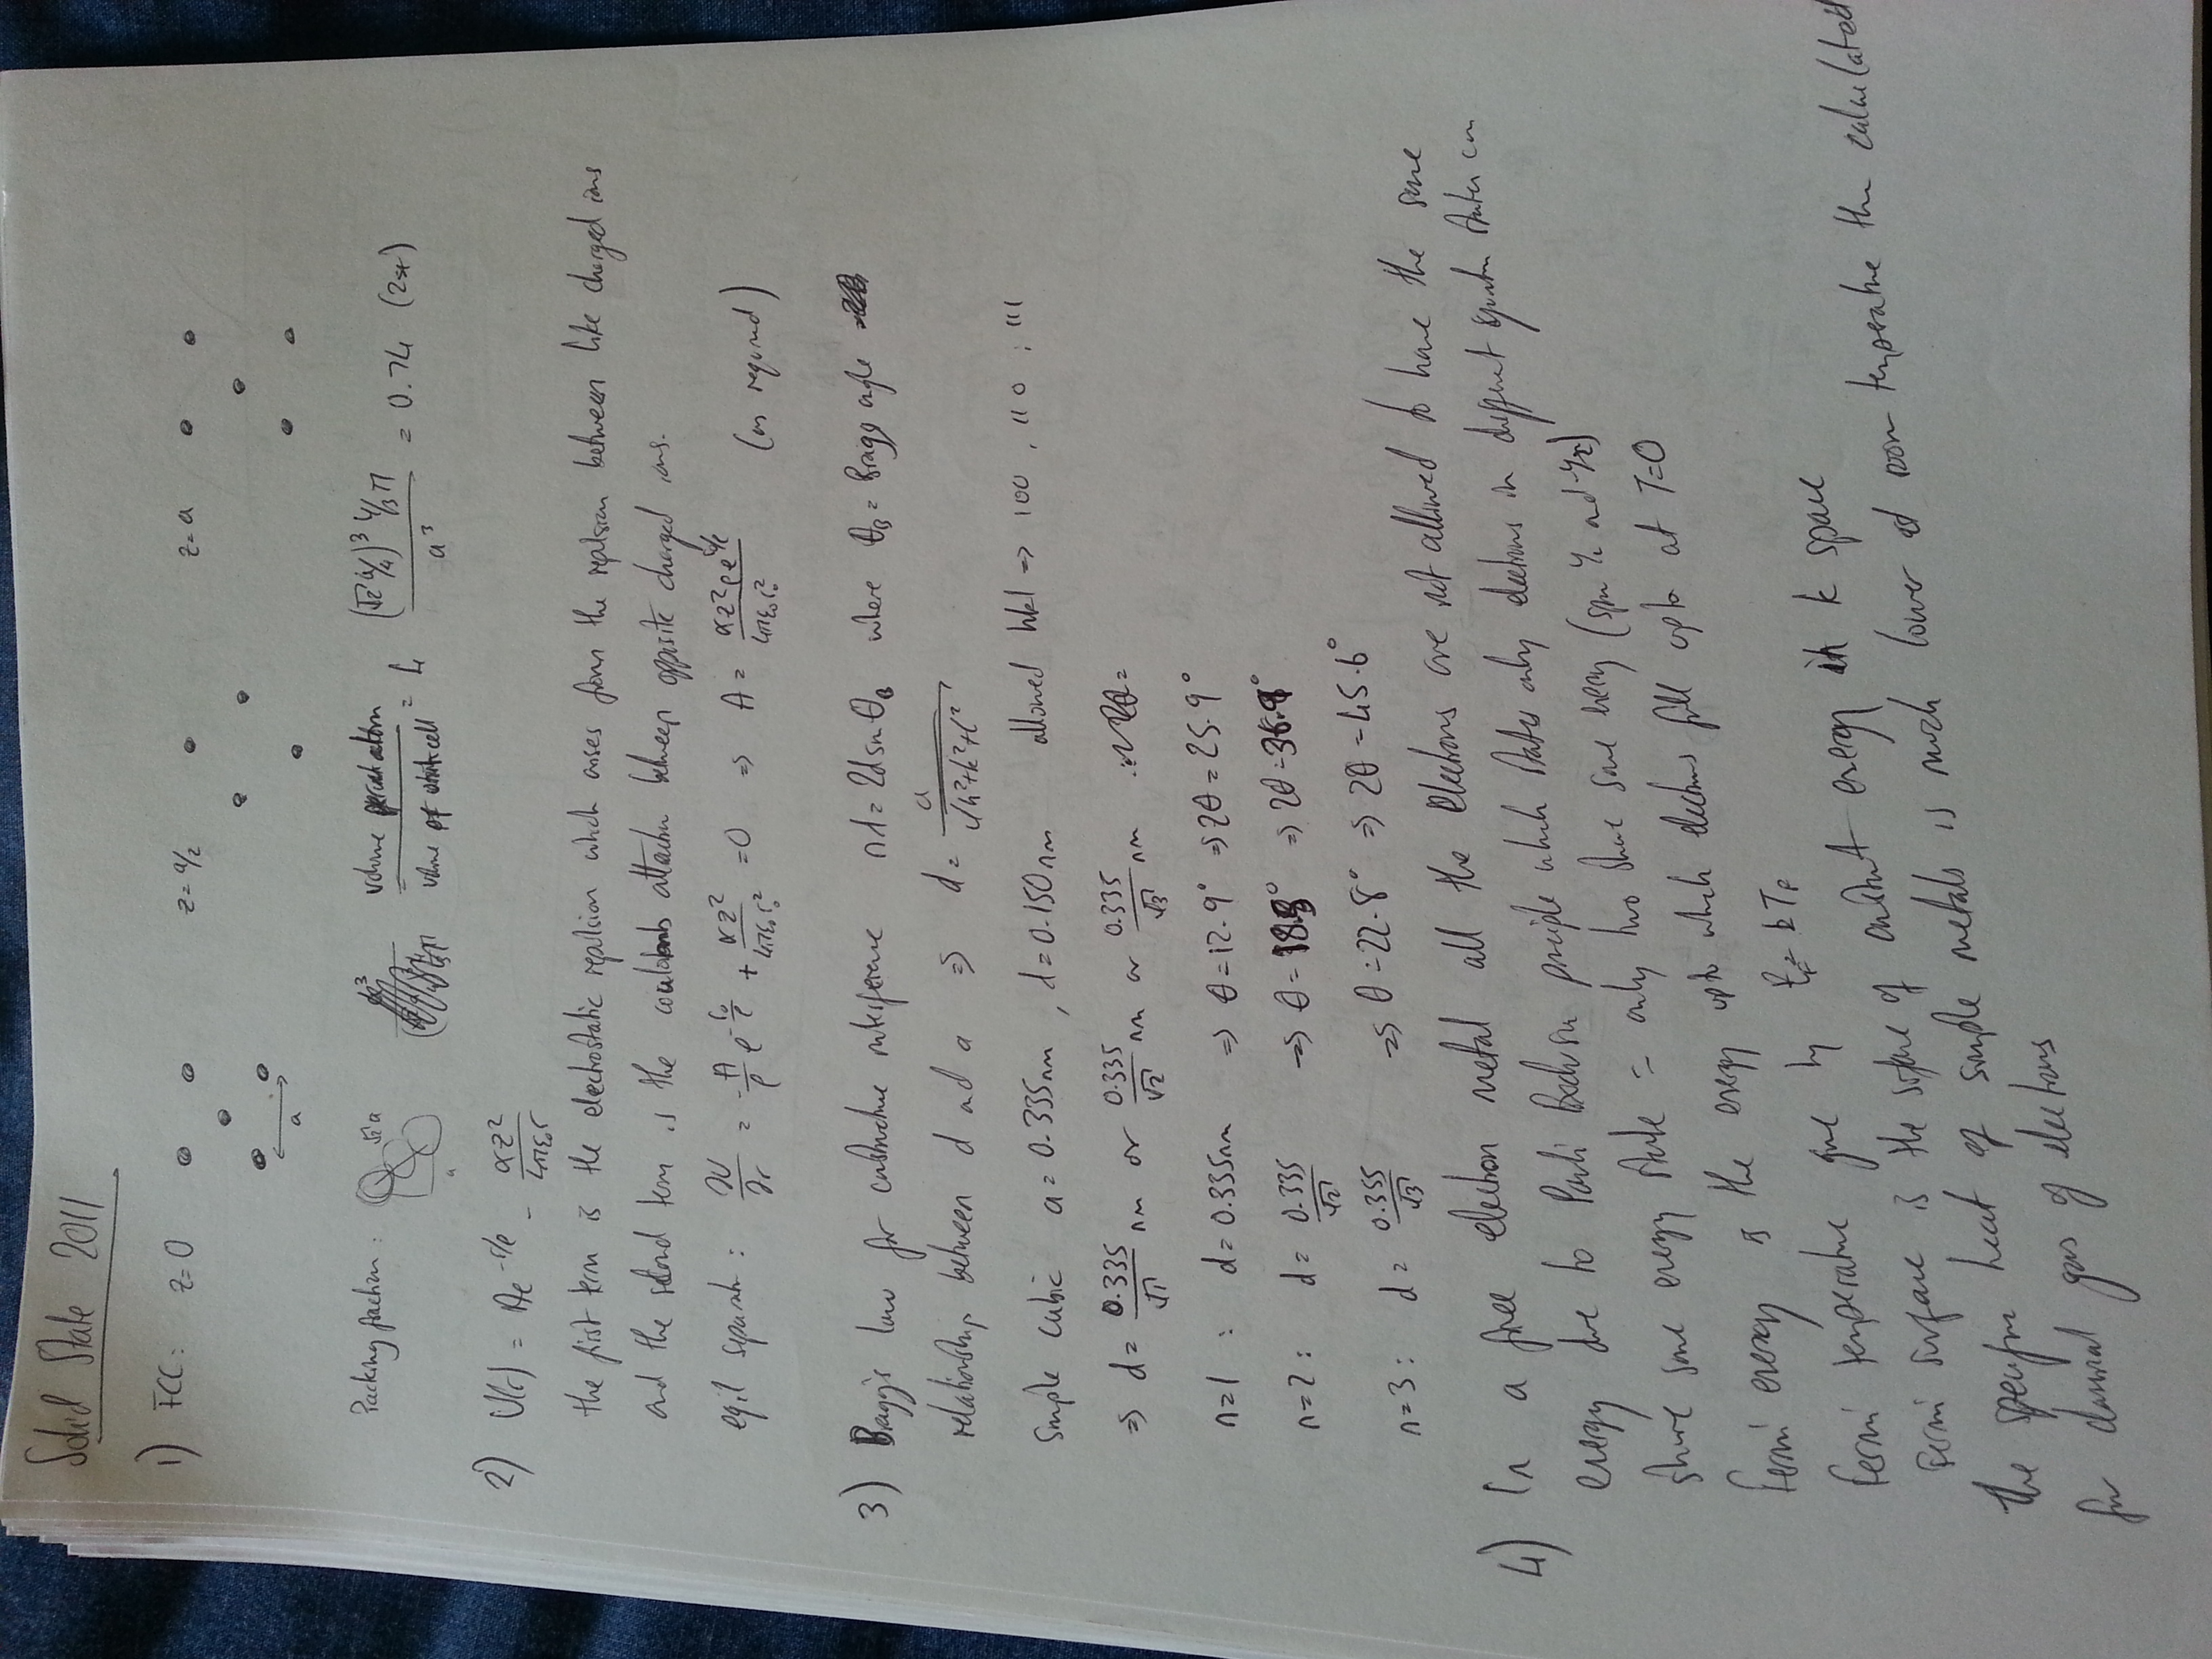 Solid State 2011
1) FCC: z=0 z=a/2 z=a
a
Packing fraction: √2 a volume per unit atom / volume of unit cell = 4 (√2 a/4)³ 4/3 π / a³ = 0.74 (2sf)
a
2) U(r) = Ae^(-r/ρ) - αz²/4πε₀r
the first term is the electrostatic repulsion which arises from the repulsion between like charged ions
and the second term is the coulomb attraction between opposite charged ions.
eqil separatn: ∂U/∂r = -A/ρ e^(-r₀/ρ) + αz²/4πε₀r₀² = 0 ⇒ A = αz²ρe^(r₀/ρ)/4πε₀r₀² (as required)
3) Bragg's law for constructive interference nλ = 2d sinθ_B where θ_B = Bragg angle
relationship between d and a ⇒ d = a/√(h²+k²+l²)
Simple cubic a = 0.335nm, λ=0.150nm allowed hkl ⇒ 100, 110, 111
⇒ d = 0.335/√1 nm or 0.335/√2 nm or 0.335/√3 nm
n=1 : d = 0.335nm ⇒ θ = 12.9° ⇒ 2θ = 25.9°
n=2 : d = 0.335/√2 ⇒ θ = ⇒ 2θ =
n=3 : d = 0.355/√3 ⇒ θ = 22.8° ⇒ 2θ = 45.6°
4) In a free electron metal all the electrons are not allowed to have the same
energy due to Pauli Exclusion principle which states only electrons in different quantum states can
share same energy state = only two share same energy (spin ½ and -½)
Fermi energy is the energy upto which electrons fill upto at T=0
Fermi temperature give by E_F = kT_F
Fermi surface is the surface of constant energy in k space
the specific heat of simple metals is much lower at room temperature than calculated
for classical gas of electrons